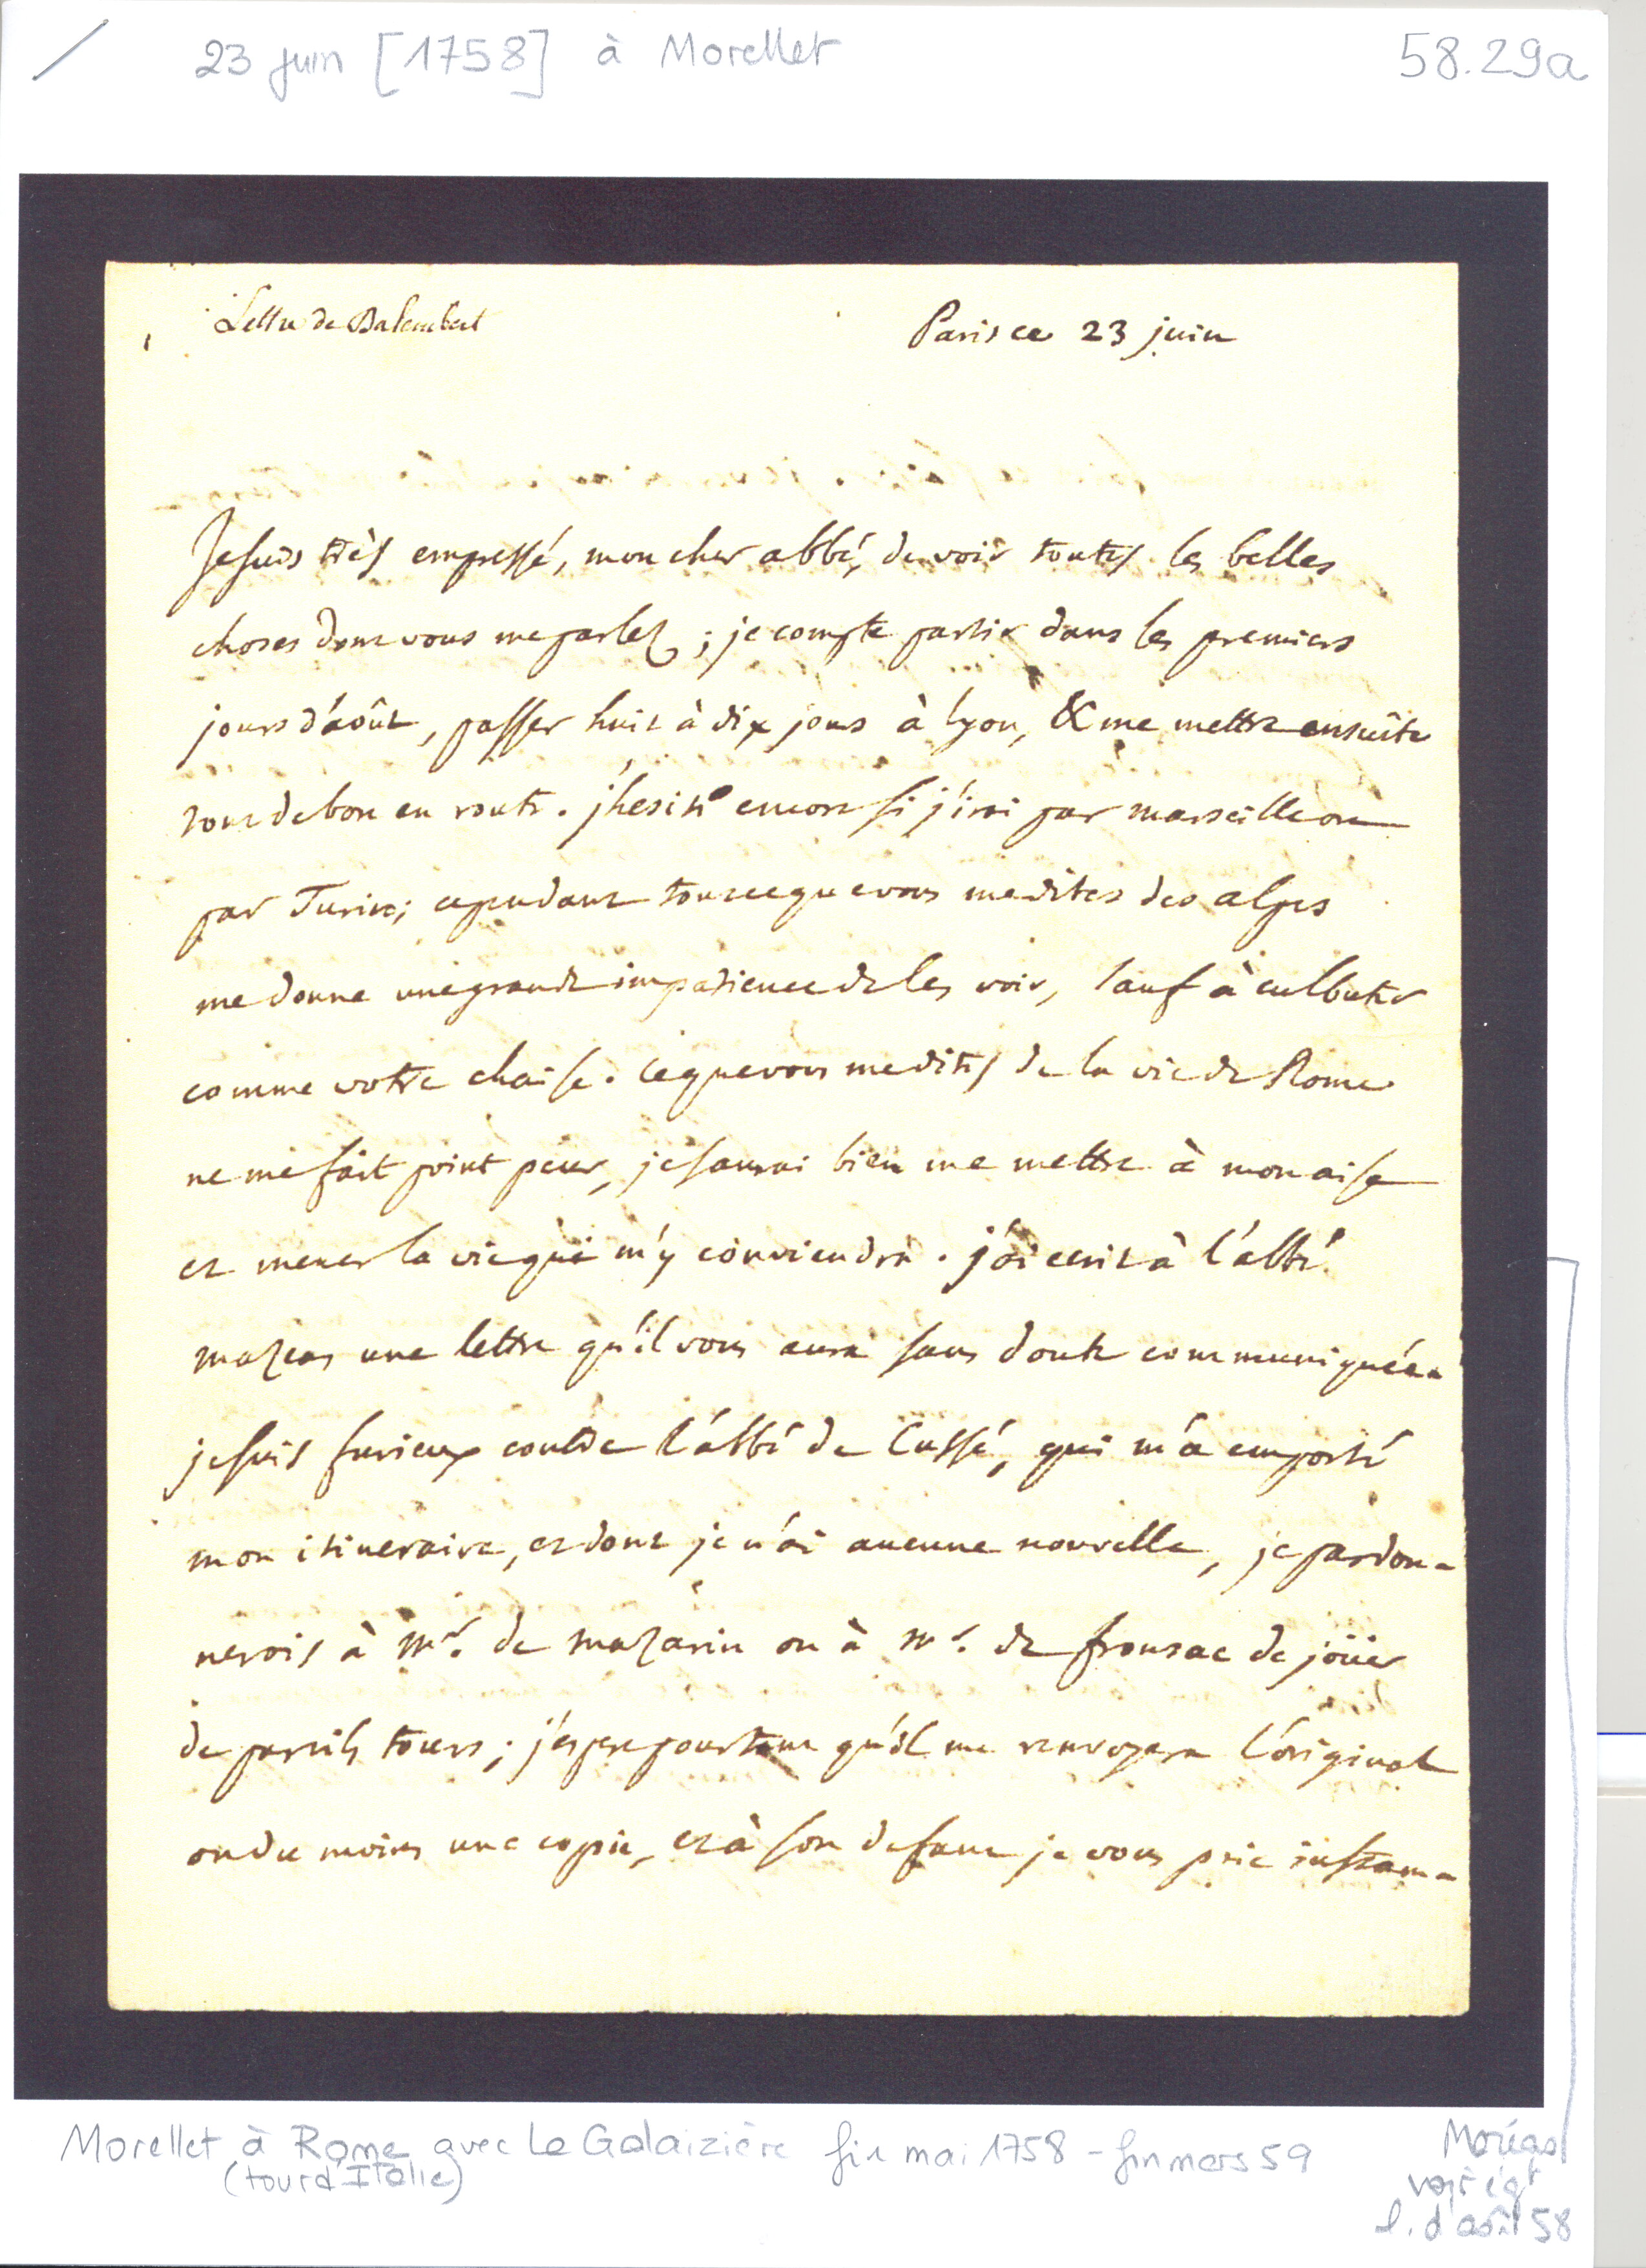 23 juin [1758] à Morellet
58.29a
Lettre de Dalembert
Paris ce 23 juin
Je suis très empressé, mon cher abbé, de voir toutes les belles
choses dont vous me parlez ; je compte partir dans les premiers
jours d'août, passer huit à dix jours à Lyon, & me mettre ensuite
tout de bon en route. j'hesite encore si j'irai par marseille ou
par Turin; cependant tout ce que vous me dites des alpes
me donne une grande impatience de les voir, sauf à culbuter
comme votre chaise. ce que vous me dites de la vie de Rome
ne me fait point peur, je saurai bien me mettre à mon aise
et mener la vie qui m'y conviendra. j'ai ecrit à l'abbé
mazeas une lettre qu'il vous aura sans doute communiquée.
je suis furieux contre l'abbé de Cussé, qui m'a emporté
mon itineraire, et dont je n'ai aucune nouvelle, je pardon-
nerois à Mr. de mazarin ou à Mr. de fronsac de joüer
de pareils tours ; j'espere pourtant qu'il me renvoyera l'original
ou du moins une copie, et à son defaut je vous prie instam-
Morellet à Rome avec La Galaizière fin mai 1758 - fin mars 59
(tour d'Italie)
voir égt
l. d'août 58